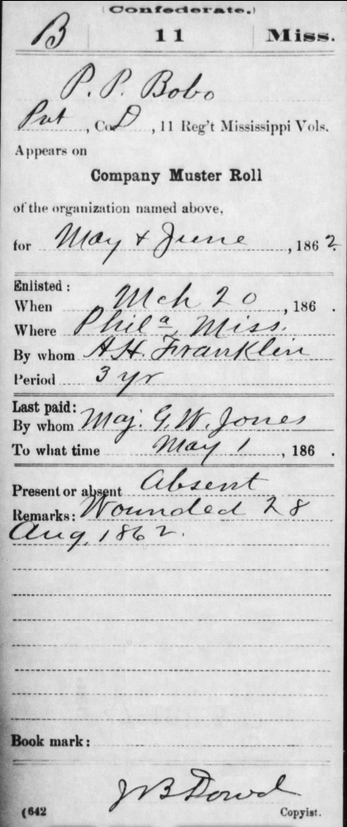 (Confederate.)
B 11 Miss.
P. P. Bobo
Pvt, Co. D, 11 Reg't Mississippi Vols.
Appears on
Company Muster Roll
of the organization named above,
for May & June, 1862.
Enlisted:
When Mch 20, 186 .
Where Phila, Miss.
By whom A.H. Franklin
Period 3 yr
Last paid:
By whom Maj. G.W. Jones
To what time May 1, 186 .
Present or absent Absent
Remarks: Wounded 28
Aug. 1862.
Book mark:
J B Dowd
(642 Copyist.